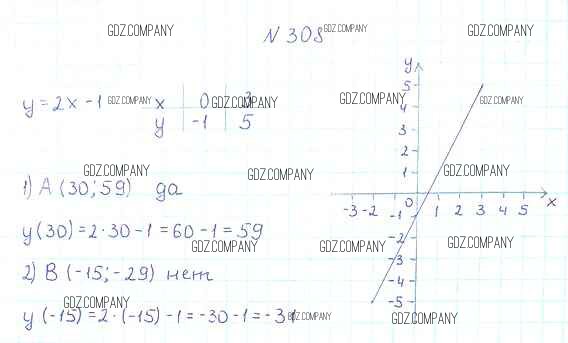 GDZ.COMPANY GDZ.COMPANY GDZ.COMPANY
N 308
y = 2x - 1 GDZ.COMPANY x 0 3 GDZ.COMPANY GDZ.COMPANY GDZ.COMPANY
y -1 5
GDZ.COMPANY GDZ.COMPANY GDZ.COMPANY
1) A (30; 59) да
y(30) = 2·30 - 1 = 60 - 1 = 59
GDZ.COMPANY GDZ.COMPANY GDZ.COMPANY
2) B (-15; -29) нет
GDZ.COMPANY
y (-15) = 2·(-15) - 1 = -30 - 1 = -31 GDZ.COMPANY GDZ.COMPANY
y
5
4
3
2
1
-3 -2 0 1 2 3 4 5 x
-1
-2
-3
-4
-5